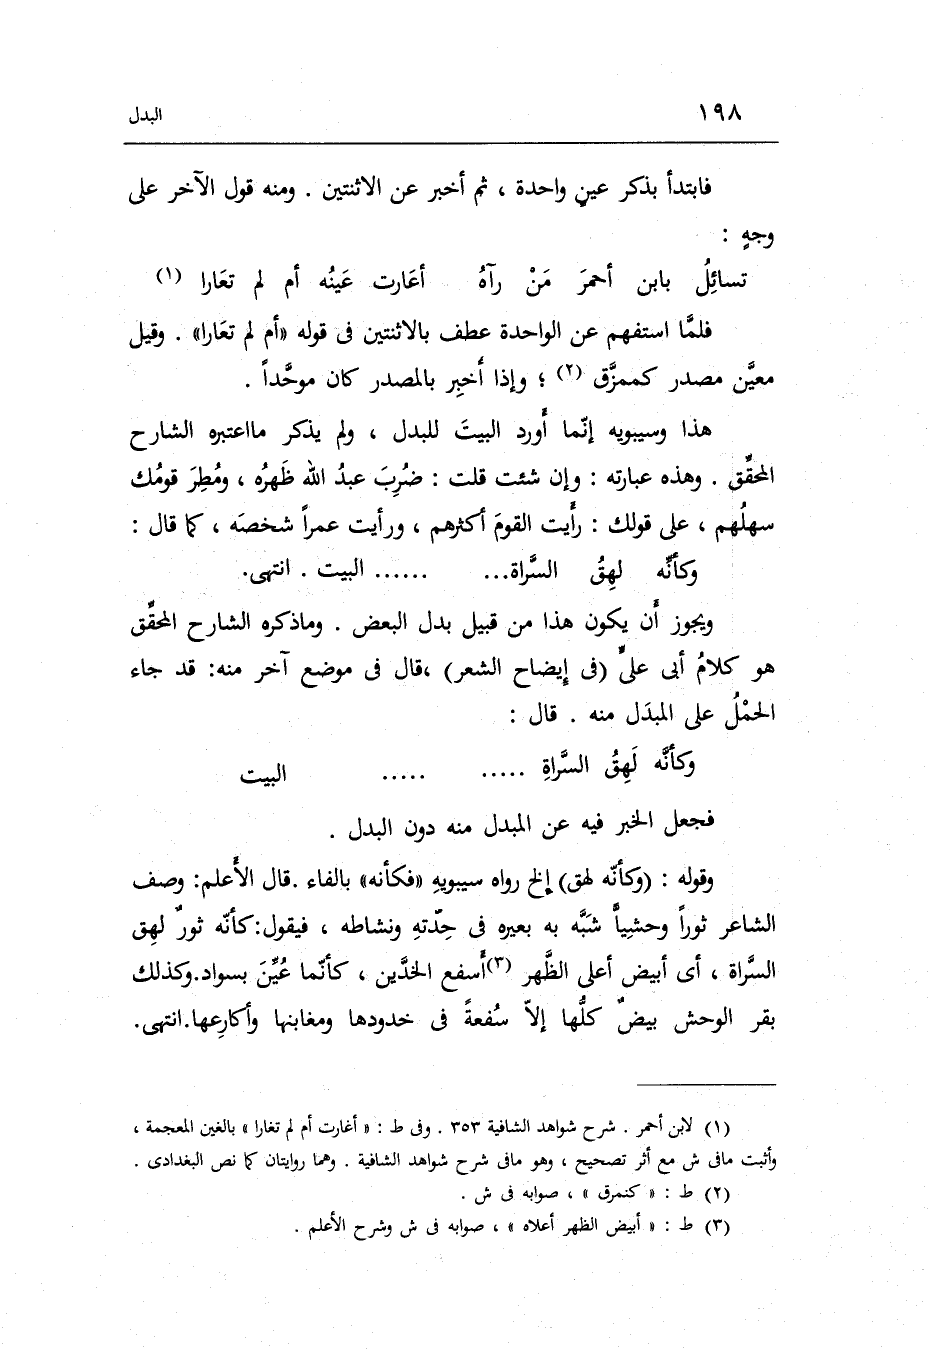 ١٩٨ البدل
فابتدأ بذكر عينٍ واحدة ، ثم أخبر عن الاثنتين . ومنه قول الآخر على
وجهٍ :
تسائِلُ بابن أحمرَ مَنْ رآهُ أعَارت عَينُه أم لم تعَارا (١)
فلمَّا استفهم عن الواحدة عطف بالاثنتين فى قوله «أم لم تعَارا» . وقيل
معيَّن مصدر كممزَّق (٢) ؛ وإذا أُخبِر بالمصدر كان موحَّداً .
هذا وسيبويه إنّما أَورد البيتَ للبدل ، ولم يذكر مااعتبره الشارح
المحقِّق . وهذه عبارته : وإن شئت قلت : ضُرِبَ عبدُ الله ظَهرُه ، ومُطِرَ قومُك
سهلُهم ، على قولك : رأَيت القومَ أكثرهم ، ورأيت عمراً شخصَه ، كما قال :
وكأنَّه لهِقُ السَّراة... ...... البيت . انتهى.
ويجوز أَن يكون هذا من قبيل بدل البعض . وماذكره الشارح المحقِّق
هو كلامُ أبى علىٍّ (فى إيضاح الشعر) ،قال فى موضع آخر منه: قد جاء
الحمْلُ على المبدَل منه . قال :
وكأنَّه لَهِقُ السَّراةِ ..... ..... البيت
فجعل الخبر فيه عن المبدل منه دون البدل .
وقوله : (وكأنّه لهق) إلخ رواه سيبويهِ «فكأنه» بالفاء .قال الأَعلم: وصف
الشاعر ثوراً وحشِياًّ شبَّه به بعيره فى حِدّتهِ ونشاطه ، فيقول:كأنّه ثورٌ لهِق
السَّراة ، أى أبيض أعلى الظَّهر (٣)أَسفع الخدَّين ، كأنّما عُيِّنَ بسواد.وكذلك
بقر الوحش بيضٌ كلُّها إلاّ سُفعةً فى خدودها ومغابنها وأكارِعها.انتهى.
(١) لابن أحمر . شرح شواهد الشافية ٣٥٣ . وفى ط : « أغارت أم لم تغارا » بالغين المعجمة ،
وأثبت مافى ش مع أثر تصحيح ، وهو مافى شرح شواهد الشافية . وهما روايتان كما نص البغدادى .
(٢) ط : « كنمرق » ، صوابه فى ش .
(٣) ط : « أبيض الظهر أعلاه » ، صوابه فى ش وشرح الأعلم .